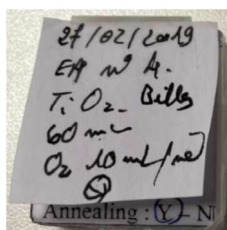 27/02/2019
EA n° 4.
TiO2 - Billes
60 mL
O2 10 mL/
Annealing : Y - N